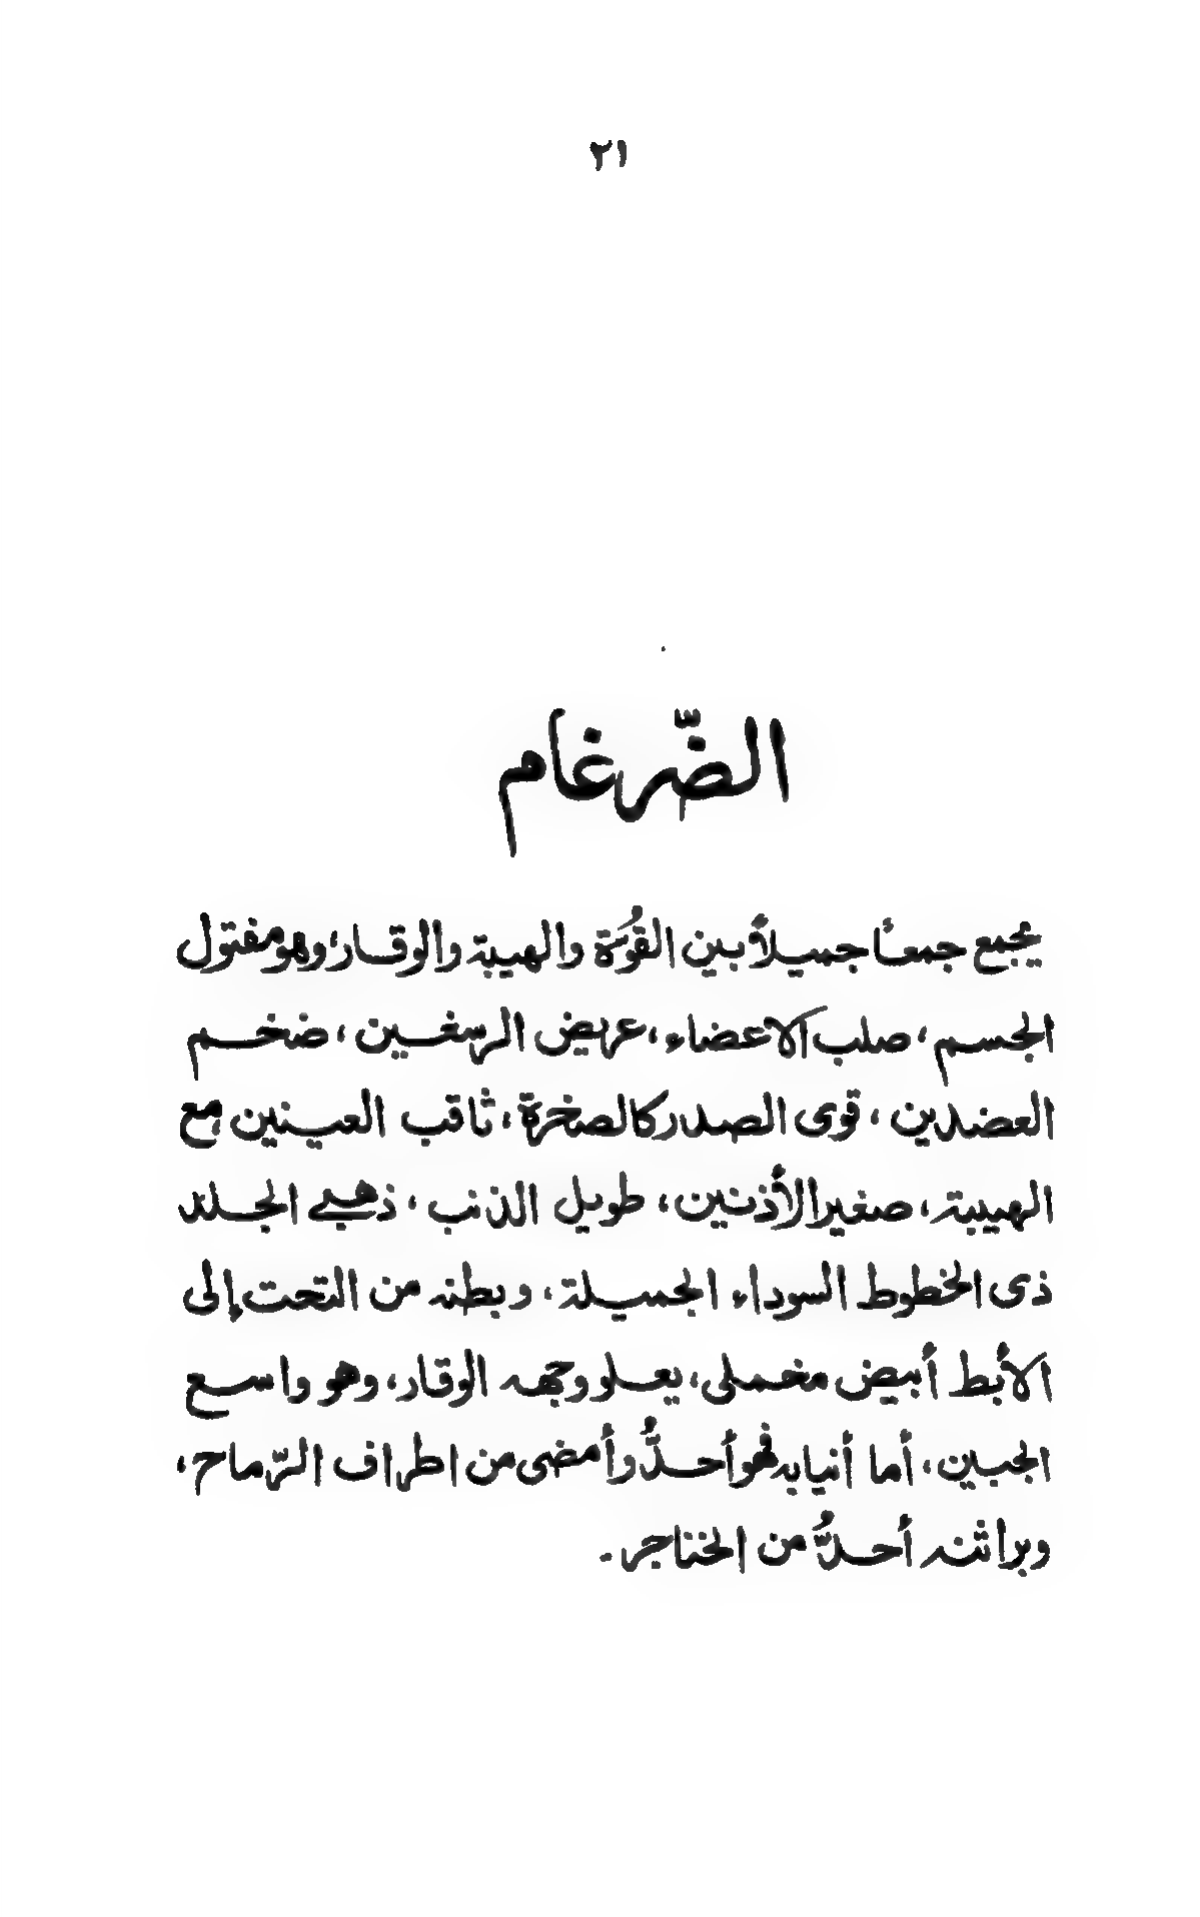 ٢١
الضّرغام
يجمع جمعاً جميلاً بين القوّة والهيبة والوقار؛ وهو مفتول
الجسم، صلب الاعضاء، عريض الرسغين، ضخم
العضدين، قوى الصدر كالصخرة، ثاقب العينين مع
الهيبة، صغير الأذنين، طويل الذنب، ذهبي الجلد
ذى الخطوط السوداء الجميلة، وبطنه من التحت إلى
الأبط أبيض مخملى، يعلو وجهه الوقار، وهو واسع
الجبين، أما أنيابه فهو أحدُّ وأمضى من اطراف الرّماح،
وبراثنه أحدُّ من الخناجر.